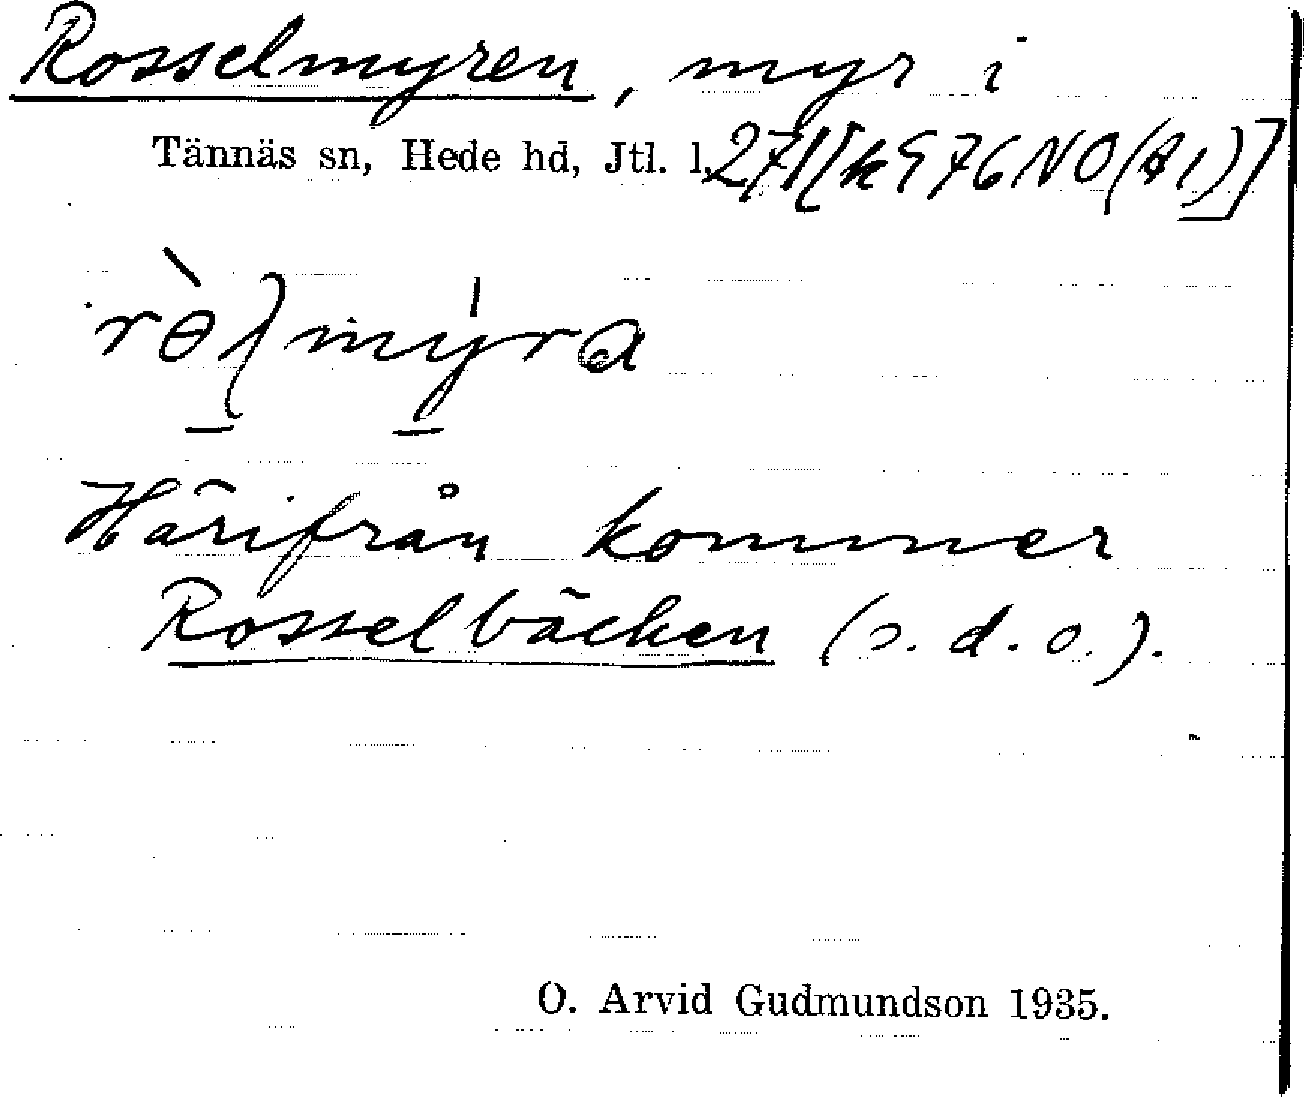 Rosselmyren, myr i
Tännäs sn, Hede hd, Jtl. l. 271[k 976 NO(A1)]
Härifrån kommer
Rosselbäcken (s.d.o.).
O. Arvid Gudmundson 1935.